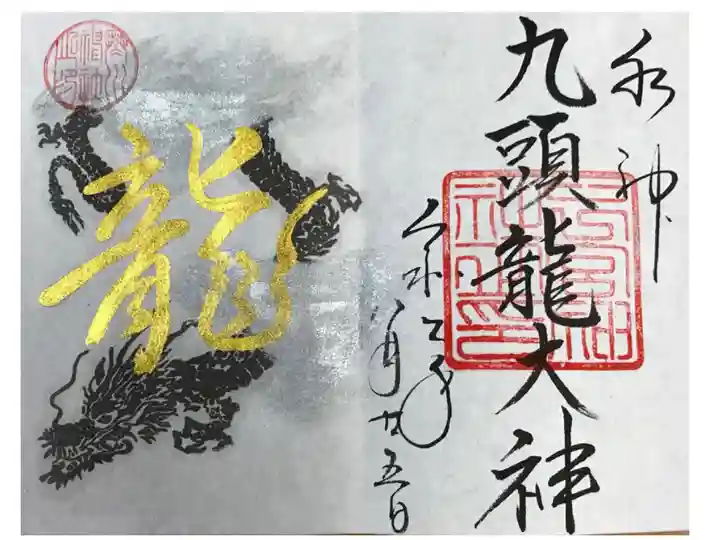 水神
九頭龍大神
令和二年八月廿五日
龍